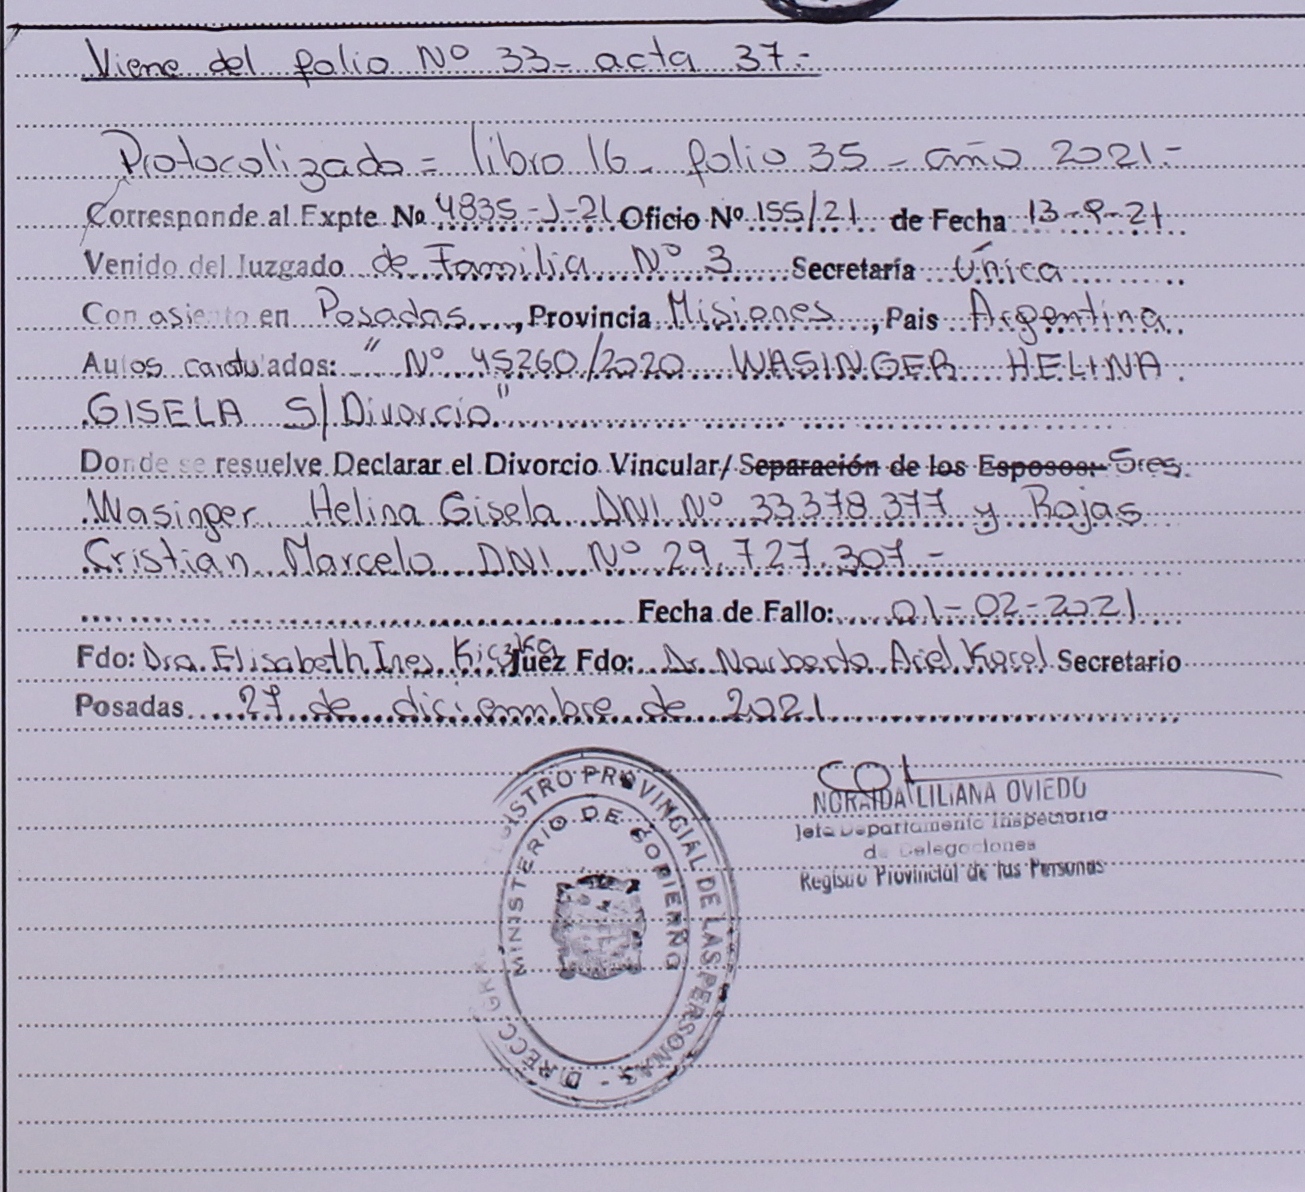 Viene del folio Nº 33- acta 37.-
Protocolizado = libro 16- folio 35 - año 2021.-
Corresponde al Expte Nº 4835-J-21 Oficio Nº 155/21 de Fecha 13-9-21
Venido del Juzgado de Familia Nº 3 Secretaría Única
Con asiento en Posadas, Provincia Misiones, Pais Argentina
Autos caratulados: "Nº 45260/2020 WASINGER HELINA
GISELA S/Divorcio"
Donde se resuelve Declarar el Divorcio Vincular/Separación de los Esposos: Sres.
Wasinger Helina Gisela DNI Nº 33.378.377 y Rojas
Cristian Marcelo DNI Nº 29.727.307.-
Fecha de Fallo: 01-02-2021
Fdo: Dra. Elisabeth Ines Kiczka Juez Fdo: Dr. Norberto Ariel Korol Secretario
Posadas 27 de diciembre de 2021
NORAIDA LILIANA OVIEDO
Jefa Departamento Inspectoria
de Delegaciones
Registro Provincial de las Personas
REGISTRO PROVINCIAL DE LAS PERSONAS - DIRECC. GRAL.
MINISTERIO DE GOBIERNO